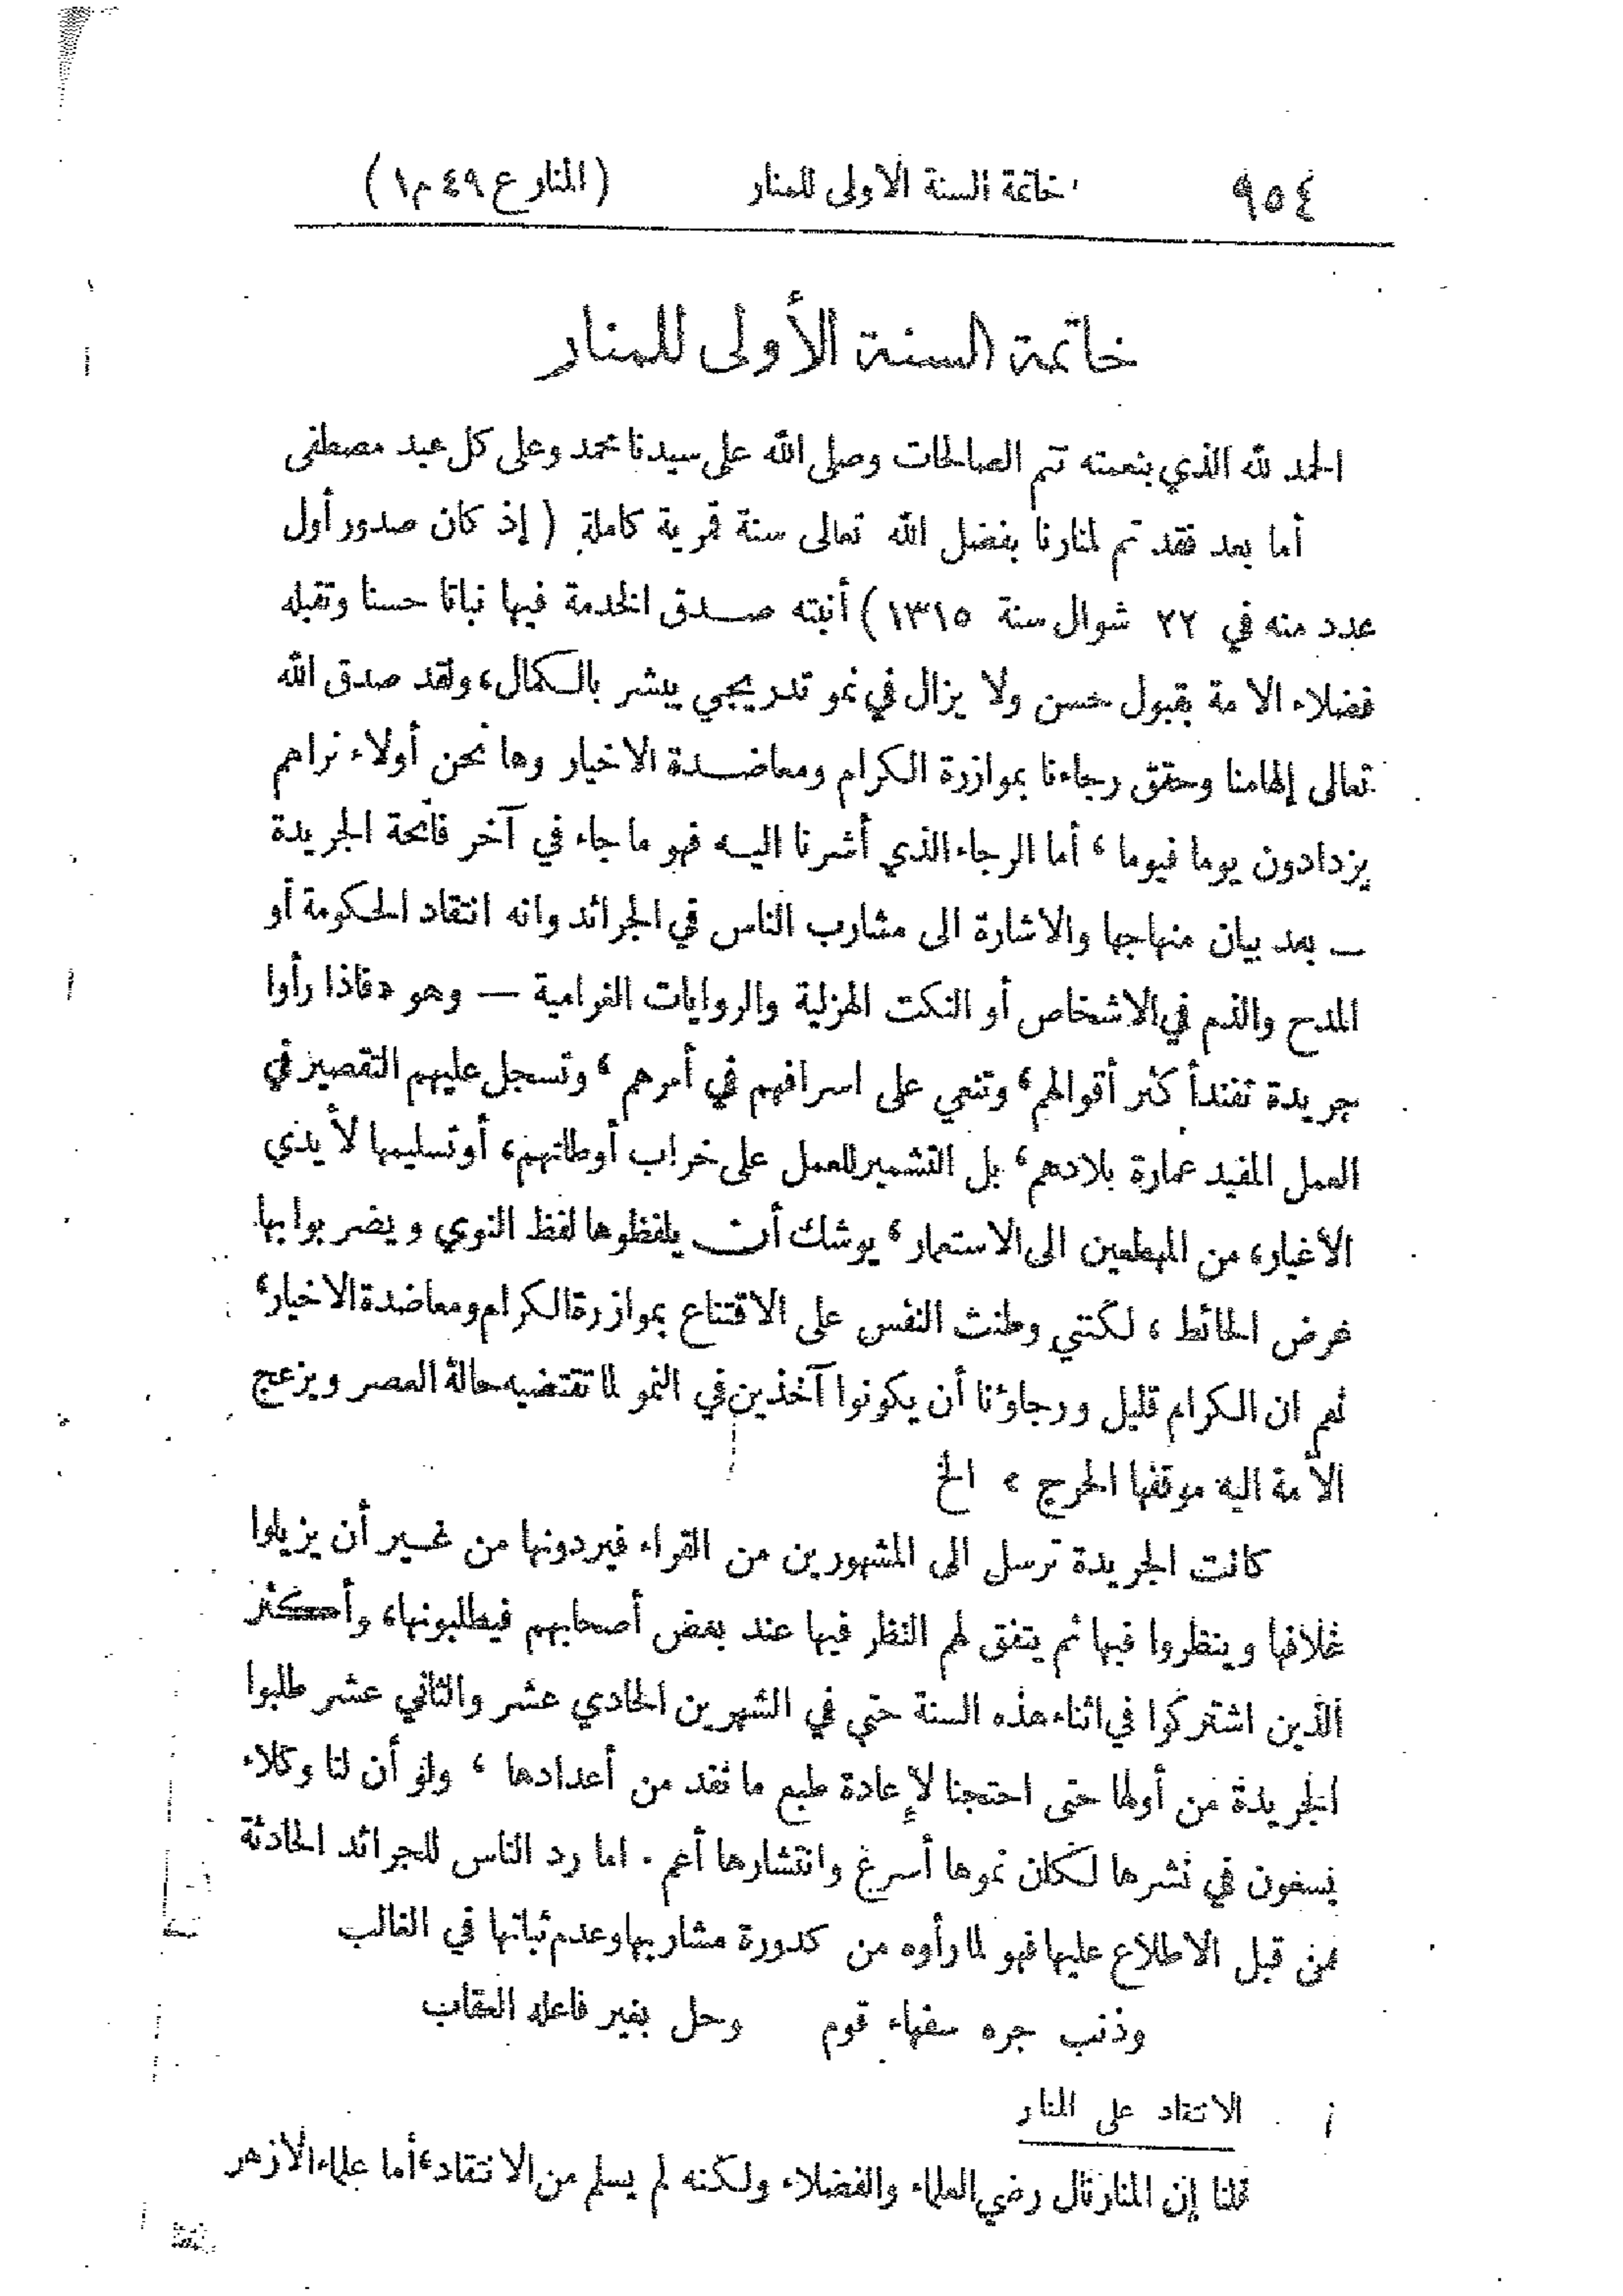 ٩٥٤ خاتمة السنة الاولى للمنار (المنار ع ٤٩ م ١)
خاتمة السنة الأولى للمنار
الحمد لله الذي بنعمته تتم الصالحات وصلى الله على سيدنا محمد وعلى كل عبد مصطفى
أما بعد فقد تم لمنارنا بفضل الله تعالى سنة قمرية كاملة ( إذ كان صدور أول
عدد منه في ٢٢ شوال سنة ١٣١٥) أنبته صدق الخدمة فيها نباتا حسنا وتقبله
فضلاء الامة بقبول حسن ولا يزال في نمو تدريجي يبشر بالكمال، ولقد صدق الله
تعالى إلهامنا وحقق رجاءنا بموازرة الكرام ومعاضدة الاخيار وها نحن أولاء نراهم
يزدادون يوما فيوما، أما الرجاء الذي أشرنا اليه فهو ما جاء في آخر فاتحة الجريدة
ـ بعد بيان منهاجها والاشارة الى مشارب الناس في الجرائد وانه انتقاد الحكومة أو
المدح والذم في الاشخاص أو النكت الهزلية والروايات الغرامية — وهو «فاذا رأوا
جريدة تفند أكثر أقوالهم، وتنعي على اسرافهم في أمرهم، وتسجل عليهم التقصير في
العمل المفيد عمارة بلادهم، بل التشمير للعمل على خراب أوطانهم، أو تسليمها لأيدي
الأغيار، من المهطعين الى الاستعمار، يوشك أن يلفظوها لفظ النوي ويضربوا بها
عرض الحائط، لكنني وطنت النفس على الاقتناع بموازرة الكرام ومعاضدة الاخيار،
نعم ان الكرام قليل ورجاؤنا أن يكونوا آخذين في النمو لما تقتضيه حالة العصر ويزعج
الأمة اليه موقفها الحرج » الخ
كانت الجريدة ترسل الى المشهورين من القراء فيردونها من غير أن يزيلوا
غلافها وينظروا فيها ثم يتفق لهم النظر فيها عند بعض أصحابهم فيطلبونها، وأكثر
الذين اشتركوا في اثناء هذه السنة حتى في الشهرين الحادي عشر والثاني عشر طلبوا
الجريدة من أولها حتى احتجنا لإعادة طبع ما نفد من أعدادها، ولو أن لنا وكلاء
يسعون في نشرها لكان نموها أسرع وانتشارها أعم . اما رد الناس للجرائد الحادثة
من قبل الاطلاع عليها فهو لما رأوه من كدورة مشاربها وعدم ثباتها في الغالب
وذنب جره سفهاء قوم وحل بغير فاعله العقاب
الانتقاد على المنار
قلنا إن المنار نال رضي العلماء والفضلاء ولكنه لم يسلم من الانتقاد، أما علماء الازهر